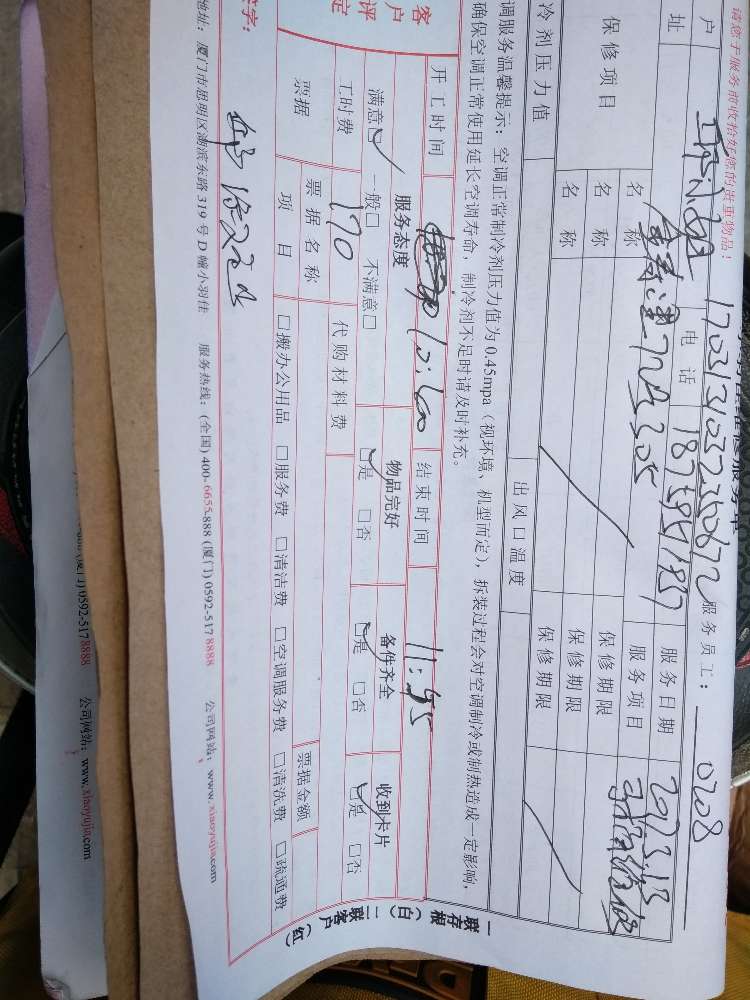 请您于服务前收拾好您的贵重物品!
服务员工: 0208
户
电话 18759541957
服务日期
址
服务项目
保修项目
名称
保修期限
名称
保修期限
名称
保修期限
冷剂压力值
出风口温度
调服务温馨提示: 空调正常制冷剂压力值为0.45mpa (视环境、机型而定), 拆装过程会对空调制冷或制热造成一定影响,
确保空调正常使用延长空调寿命, 制冷剂不足时请及时补充。
开工时间
结束时间 11:45
客户评定
服务态度 物品完好 备件齐全 收到卡片
满意□ 一般□ 不满意□ □是 □否 □是 □否 □是 □否
工时费 170 代购材料费
票据 票据名称 票据金额
项目 □搬办公用品 □服务费 □清洁费 □空调服务费 □清洗费 □疏通费
签字:
地址: 厦门市思明区湖滨东路319号D幢小羽佳 服务热线: (全国) 400-6655-888 (厦门) 0592-517 8888 公司网站: www.xiaoyujia.com
一联存根(白) 二联客户(红)
0592-5178888 公司网站: www.xiaoyujia.com